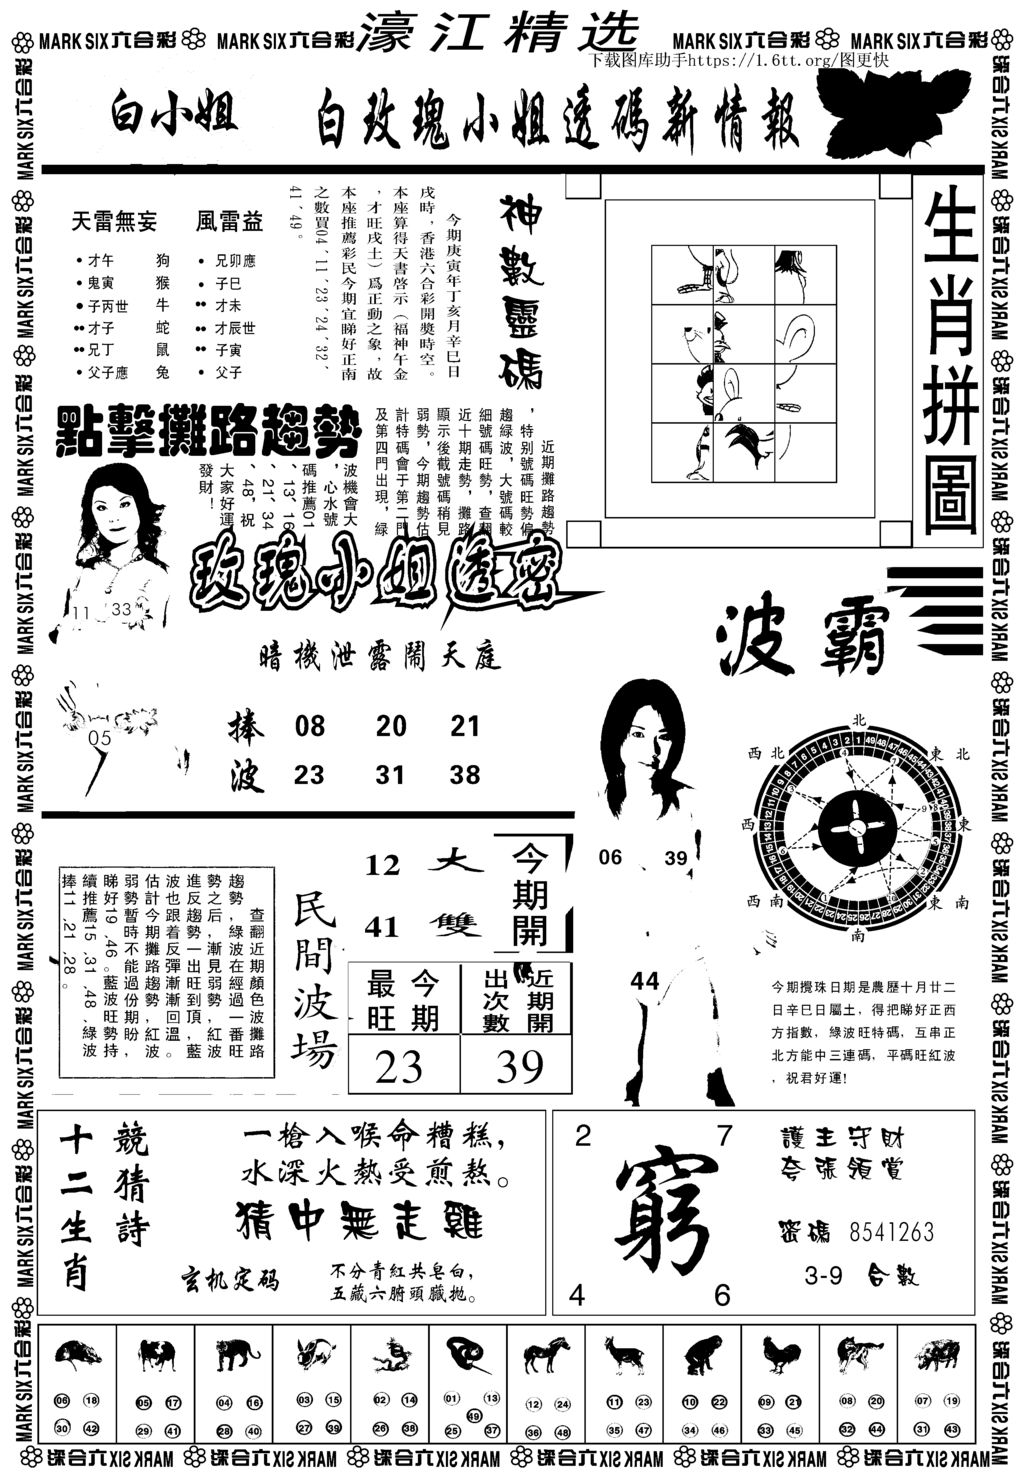 MARK SIX六合彩
MARK SIX六合彩
濠江精选
MARK SIX六合彩
MARK SIX六合彩
下载图库助手https://1.6tt.org/图更快
白小姐
白玫瑰小姐透碼新情報
天雷無妄
風雷益
才午 狗 兄卯應
鬼寅 猴 子巳
子丙世 牛 才未
才子 蛇 才辰世
兄丁 鼠 子寅
父子應 兔 父子
神數靈碼
今期庚寅年丁亥月辛巳日
戌時，香港六合彩開獎時空。
本座算得天書啓示（福神午金
，才旺戌土）爲正動之象，故
本座推薦彩民今期宜睇好正南
之數買04、11、23、24、32、
41、49。
生肖拼圖
點擊攤路趨勢
近期攤路趨勢
，特别號碼旺勢偏
趨緑波，大號碼較
細號碼旺勢，查翻
近十期走勢，攤路
顯示後截號碼稍見
弱勢，今期趨勢估
計特碼會于第二門
及第四門出現，緑
波機會大
，心水號
碼推薦01
、13、16
、21、34
、48，祝
大家好運
發財！
11 33
05
玫瑰小姐透密
暗機泄露鬧天庭
捧 08 20 21
波 23 31 38
波霸
06 39
44
北
西北 東北
西 東
西南 東南
南
今期攪珠日期是農歷十月廿二
日辛巳日屬土，得把睇好正西
方指數，綠波旺特碼，互串正
北方能中三連碼，平碼旺紅波
，祝君好運!
查翻近期顏色波攤路
趨勢，綠波在經過一番旺
勢之后，漸見弱勢，紅波
進反趨勢一出旺到頂，藍
波也跟着反彈漸漸回溫。
估計今期攤路趨勢，紅波
弱勢暫時不能過份期盼，
睇好19、46。藍波旺勢持
續推薦15、31、48、綠波
捧11、21、28。
民間波場
12 大
41 雙
今期開
最旺 今期
出次數 近期開
23
39
十二生肖
競猜詩
一槍入喉命糟糕，
水深火熱受煎熬。
猜中無走雞
玄机定码
不分青紅共皂白，
五藏六腑頭臟抛。
2 7
窮
4 6
護主守財
夸張領賞
密碼 8541263
3-9 合數
06 18 30 42
05 17 29 41
04 16 28 40
03 15 27 39
02 14 26 38
01 13 49 25 37
12 24 36 48
11 23 35 47
10 22 34 46
09 21 33 45
08 20 32 44
07 19 31 43